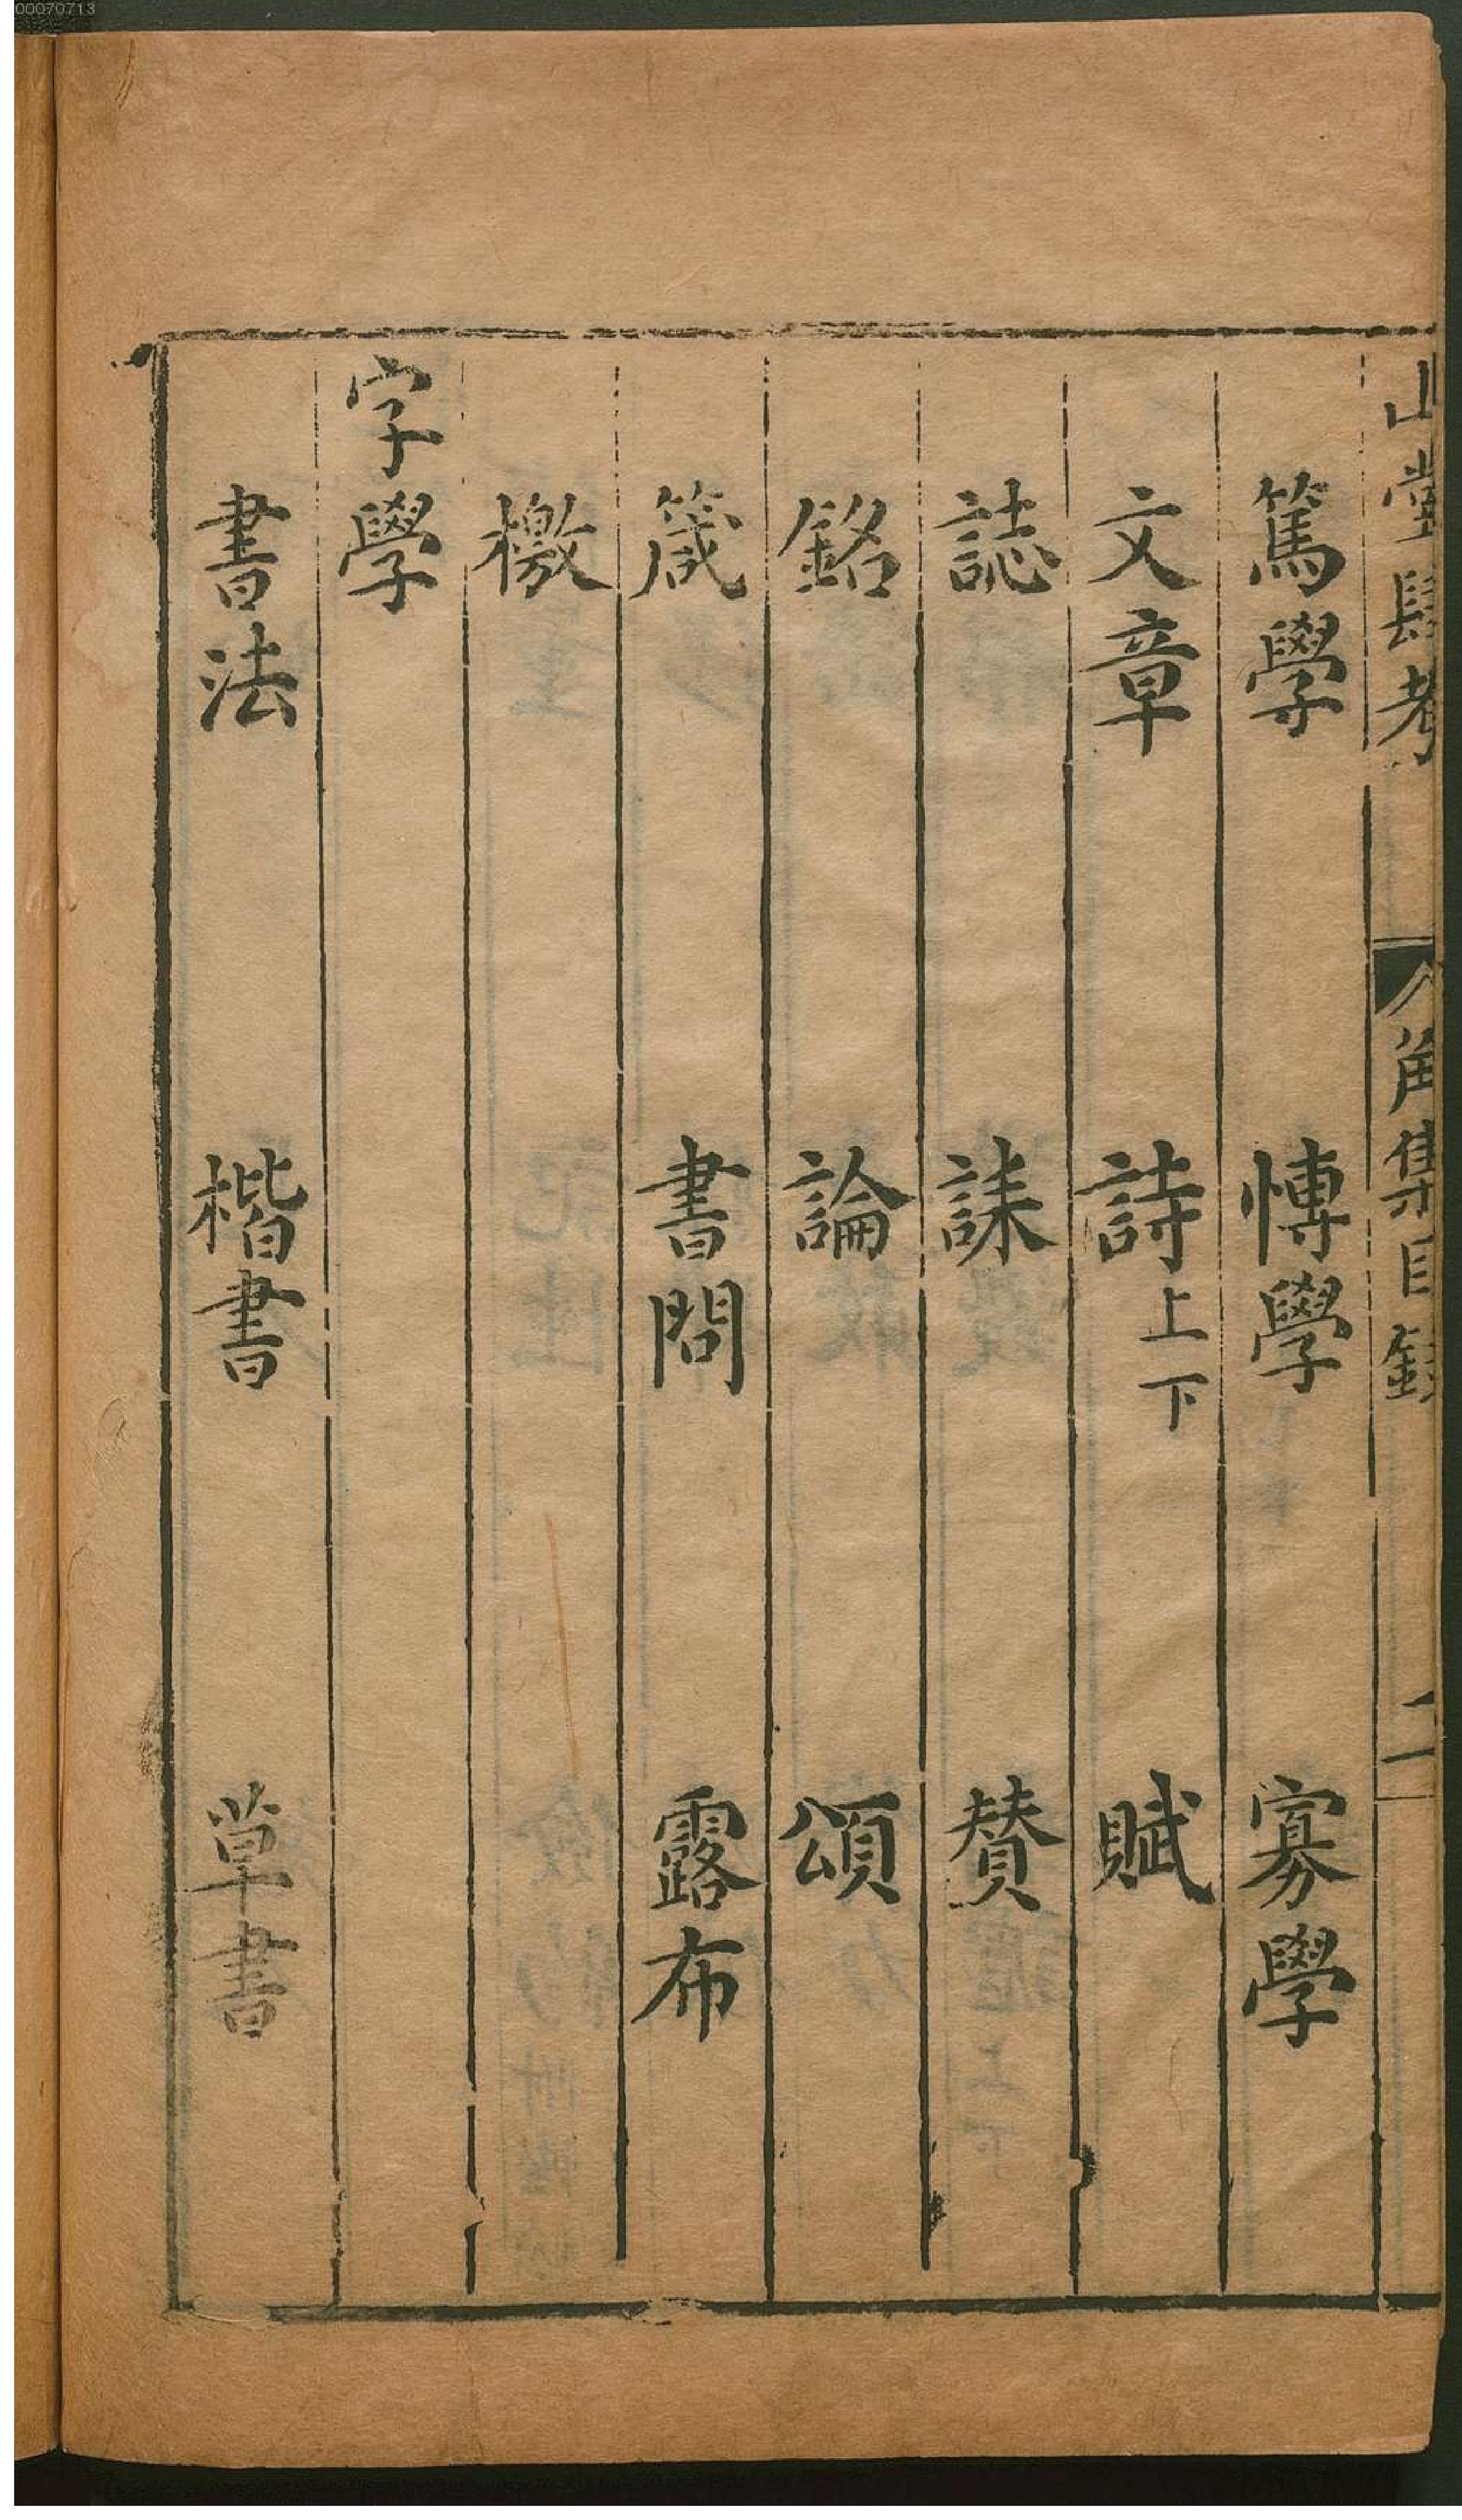 00070713
山堂肆考 角集目録 二
篤學 愽學 寡學
文章 詩上下 賦
誌 誄 賛
銘 論 頌
箴 書問 露布
檄
字學
書法 楷書 草書